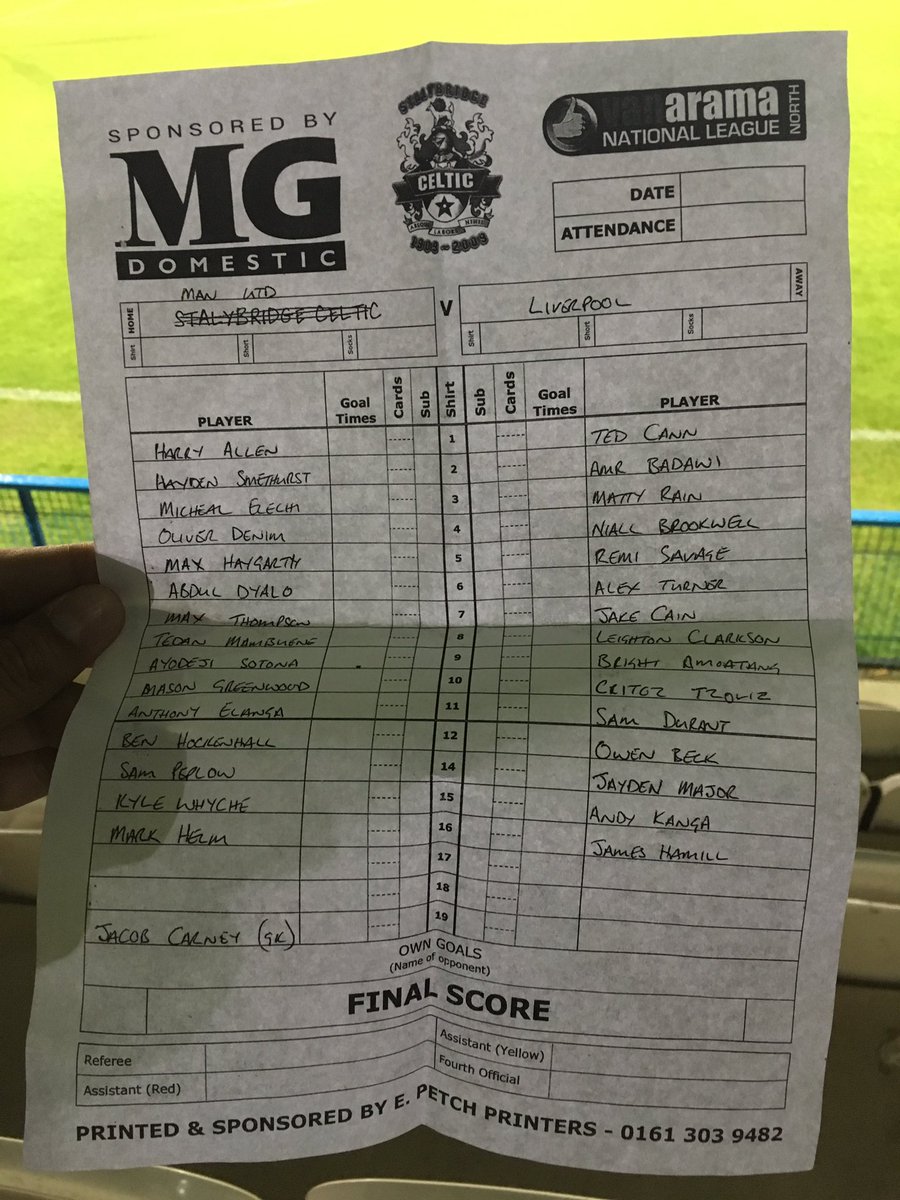 SPONSORED BY
MG
DOMESTIC
STALYBRIDGE
CELTIC
LABOR
1909 - 2009
vanarama
NATIONAL LEAGUE
NORTH
DATE
ATTENDANCE
MAN UTD
HOME STALYBRIDGE CELTIC V LIVERPOOL AWAY
Shirt Short Socks Shirt Short Socks
PLAYER Goal Times Cards Sub Shirt Sub Cards Goal Times PLAYER
HARRY ALLEN 1 TED CANN
HAYDEN SMETHURST 2 AMR BADAWI
MICHEAL ELECHI 3 MATTY RAIN
OLIVER DENIM 4 NIALL BROOKWELL
MAX HAYGARTH 5 REMI SAVAGE
ABDUL DYALO 6 ALEX TURNER
MAX THOMPSON 7 JAKE CAIN
TEDAN MAMBUENE 8 LEIGHTON CLARKSON
AYODEJI SOTONA 9 BRIGHT AMOATANG
MASON GREENWOOD 10 CRITOZ TZOLIZ
ANTHONY ELANGA 11 SAM DURANT
BEN HOCKENHALL 12 OWEN BECK
SAM PEPLOW 14 JAYDEN MAJOR
KYLE WHYCHE 15 ANDY KANGA
MARK HELM 16 JAMES HAMILL
17
18
JACOB CARNEY (GK) 19
OWN GOALS
(Name of opponent)
FINAL SCORE
Referee Assistant (Yellow)
Assistant (Red) Fourth Official
PRINTED & SPONSORED BY E. PETCH PRINTERS - 0161 303 9482